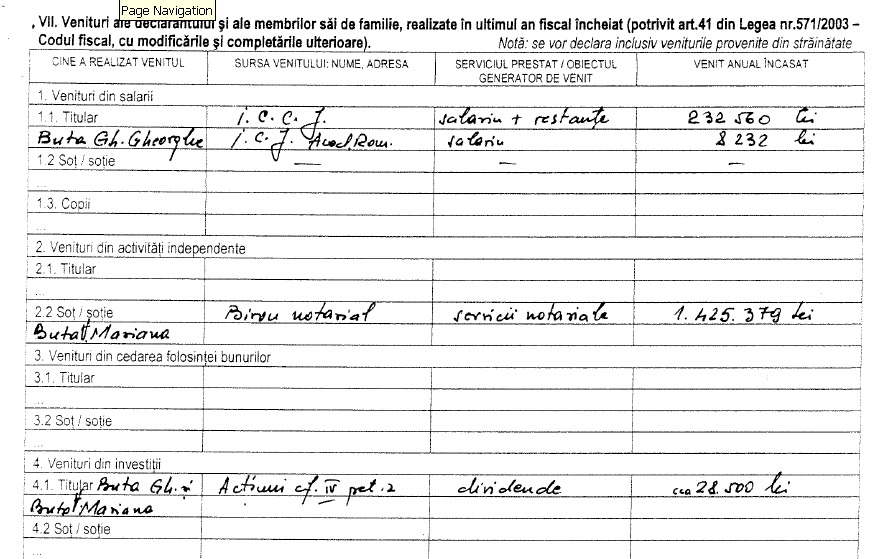 Page Navigation
VII. Venituri ale declarantului și ale membrilor săi de familie, realizate în ultimul an fiscal încheiat (potrivit art.41 din Legea nr.571/2003 –
Codul fiscal, cu modificările și completările ulterioare). Notă: se vor declara inclusiv veniturile provenite din străinătate
CINE A REALIZAT VENITUL SURSA VENITULUI: NUME, ADRESA SERVICIUL PRESTAT / OBIECTUL GENERATOR DE VENIT VENIT ANUAL ÎNCASAT
1. Venituri din salarii
1.1. Titular I.C.C.J. salariu + restanțe 232 560 lei
Buta Gh. Gheorghe I.C.J. Acad. Rom. salariu 8 232 lei
1.2 Soț / soție — — —
...
1.3. Copii
...
2. Venituri din activități independente
2.1. Titular
...
2.2 Soț / soție Birou notarial servicii notariale 1.425.379 lei
Buta Mariana
3. Venituri din cedarea folosinței bunurilor
3.1. Titular
...
3.2 Soț / soție
...
4. Venituri din investiții
4.1. Titular Buta Gh. și Acțiuni cf. IV pct. 2 dividende cca 28.500 lei
Buta Mariana
4.2 Soț / soție